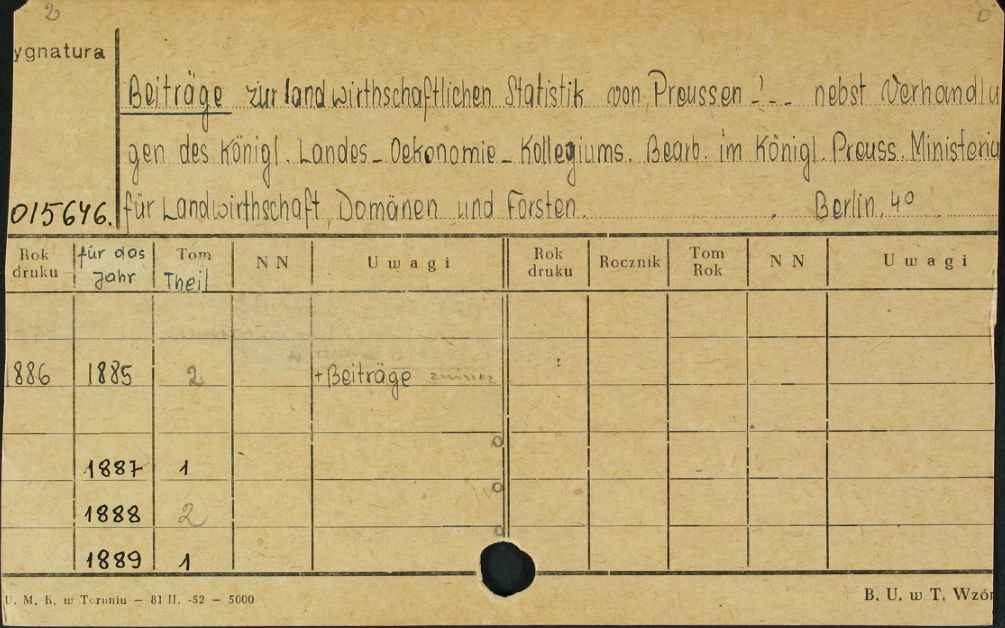 2
ygnatura
Beiträge zur landwirthschaftlichen Statistik von Preussen - ' - - nebst Verhandlu
gen des Königl. Landes-Oekonomie-Kollegiums. Bearb. im Königl. Preuss. Ministeriu
015646. für Landwirthschaft, Domänen und Forsten. . Berlin. 4º
Rok druku für das Jahr Tom Theil NN Uwagi Rok druku Rocznik Tom Rok NN Uwagi
1886 1885 2 + Beiträge
1887 1
1888 2
1889 1
U. M. K. w Toruniu — 81 II. -52 — 5000 B. U. w T. Wzór